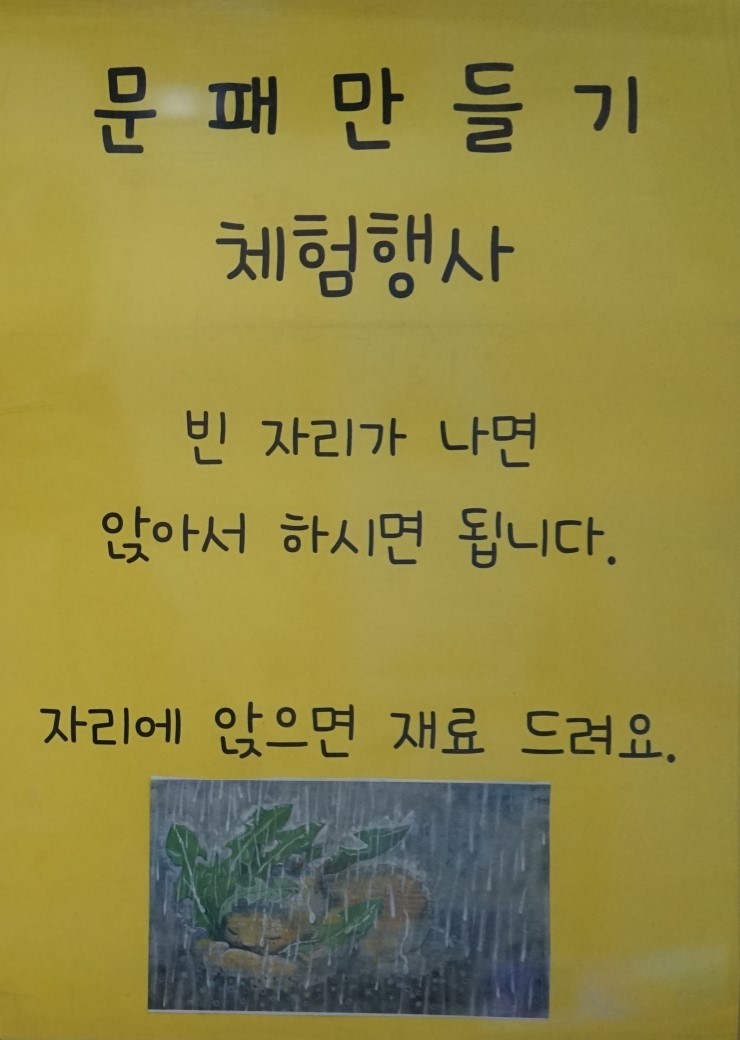 문 패 만 들 기
체험행사
빈 자리가 나면
앉아서 하시면 됩니다.
자리에 앉으면 재료 드려요.